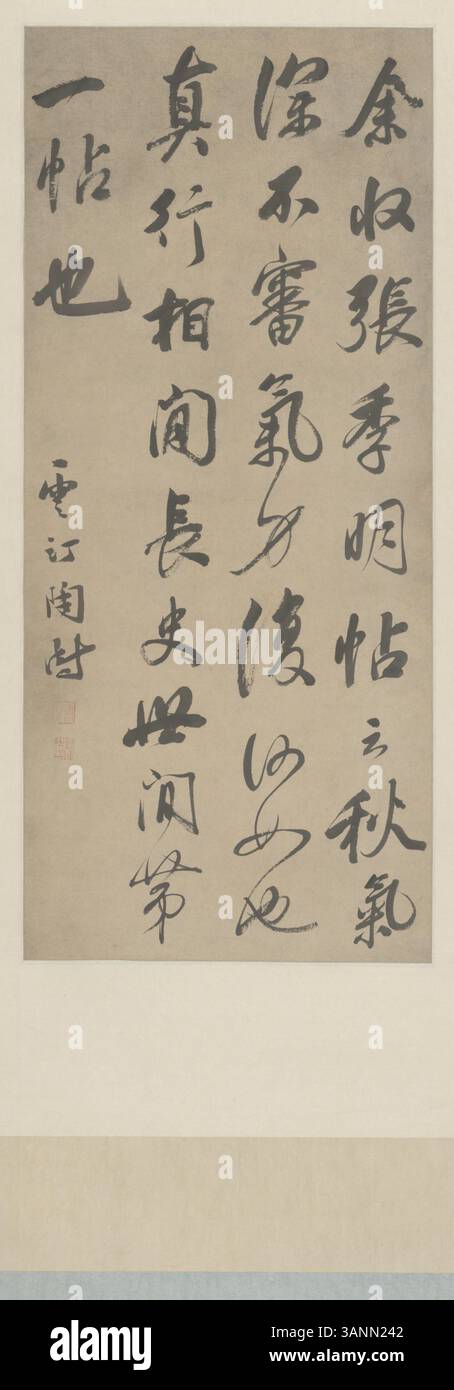 余收張季明帖云秋氣
深不審氣力復何如也
真行相間長史世間第
一帖也
雲汀陶澍
alamy
Image ID: 3ANN242
www.alamy.com